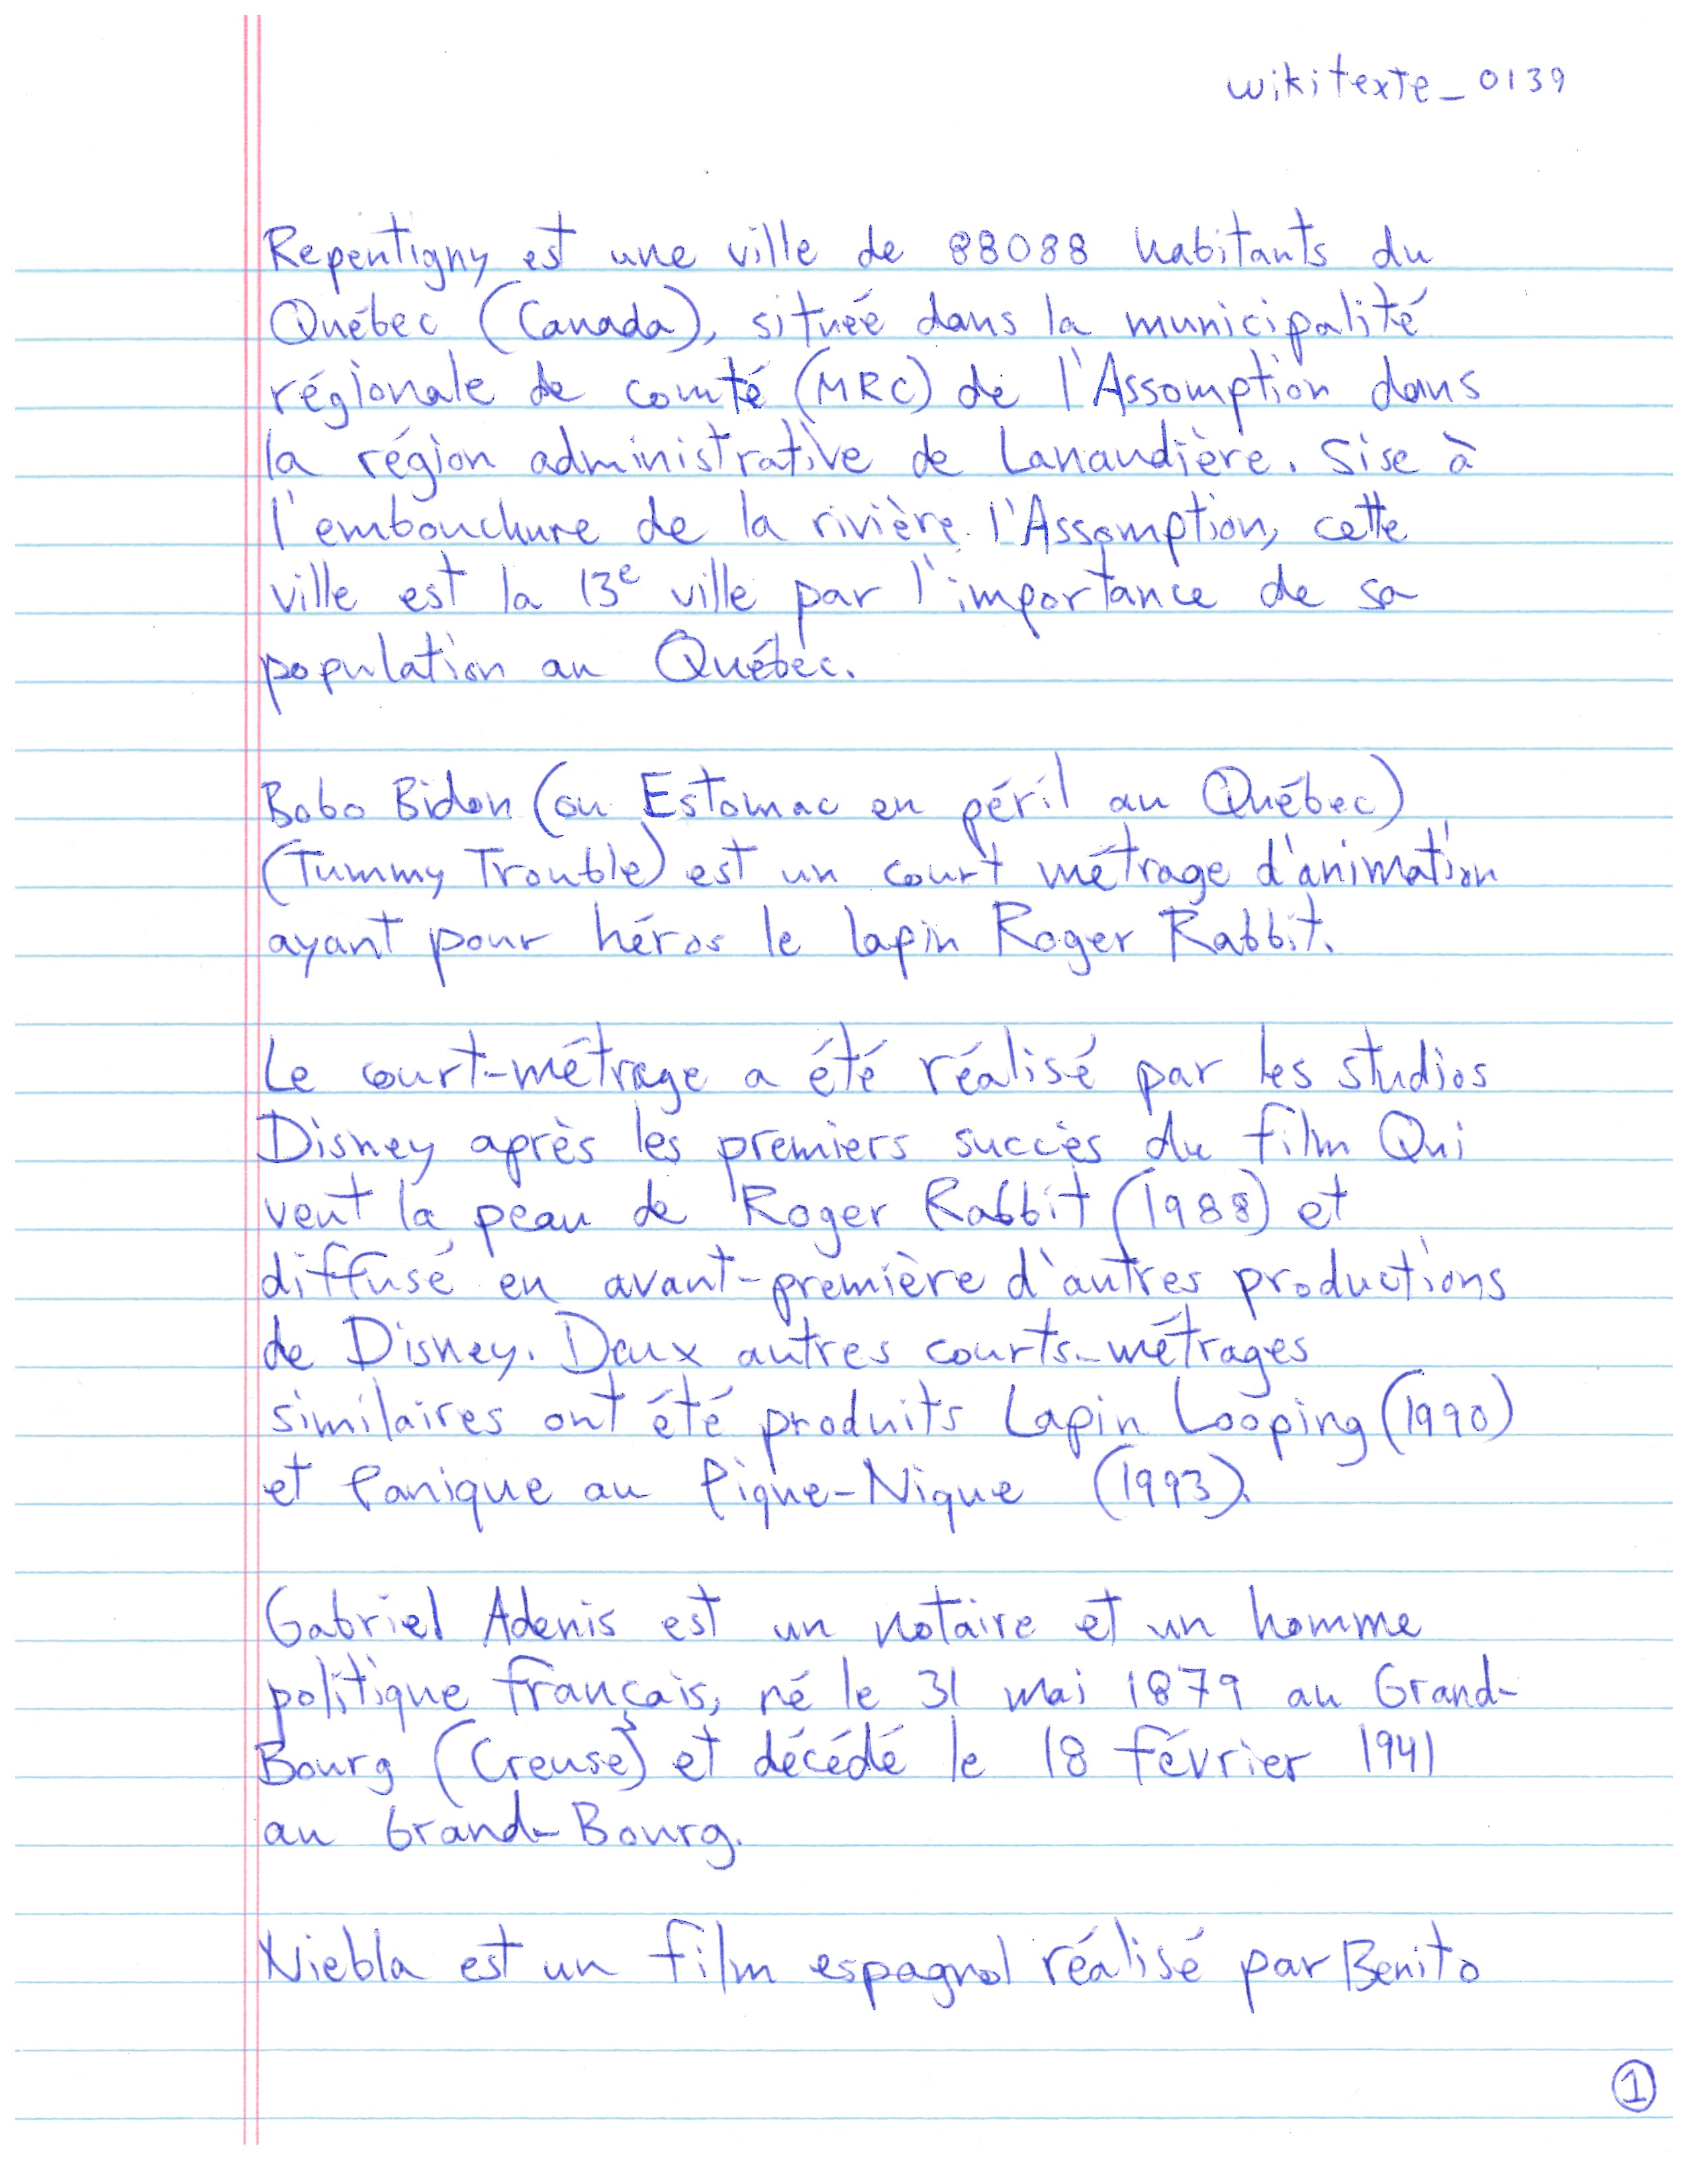 wikitexte_0139
Repentigny est une ville de 88088 habitants du
Québec (Canada), située dans la municipalité
régionale de comté (MRC) de l'Assomption dans
la région administrative de Lanaudière. Sise à
l'embouchure de la rivière l'Assomption, cette
ville est la 13e ville par l'importance de sa
population au Québec.
Bobo Bidon (ou Estomac en péril au Québec)
(Tummy Trouble) est un court métrage d'animation
ayant pour héros le lapin Roger Rabbit.
Le court-métrage a été réalisé par les studios
Disney après les premiers succès du film Qui
veut la peau de Roger Rabbit (1988) et
diffusé en avant-première d'autres productions
de Disney. Deux autres courts-métrages
similaires ont été produits Lapin Looping (1990)
et Panique au Pique-Nique (1993).
Gabriel Adenis est un notaire et un homme
politique français, né le 31 mai 1879 au Grand-
Bourg (Creuse) et décédé le 18 février 1941
au Grand-Bourg.
Niebla est un film espagnol réalisé par Benito
1